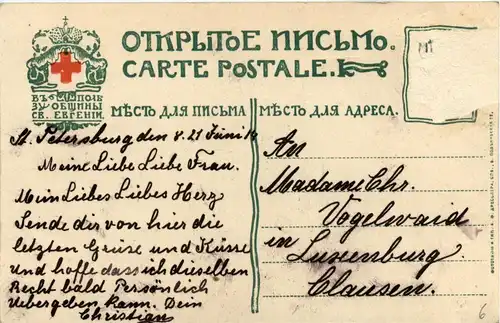 ОТКРЫТОЕ ПИСЬМО.
CARTE POSTALE.
ВЪ ПОЛЬ
ЗУ ОБЩИНЫ
СВ. ЕВГЕНІИ.
МѢСТО ДЛЯ ПИСЬМА
МѢСТО ДЛЯ АДРЕСА.
St. Petersburg den 8.21 Juni 14
Meine Liebe Liebe Frau.
Mein Liebes Liebes Herz
Sende dir von hier die
letzten Grüse und Küsse
und hoffe dass ich dieselben
Recht bald Persönlich
Uebergeben kann. Dein
Christian
An
Madame Chr.
Vogelwaid
in
Luxenburg.
Clausen.
6